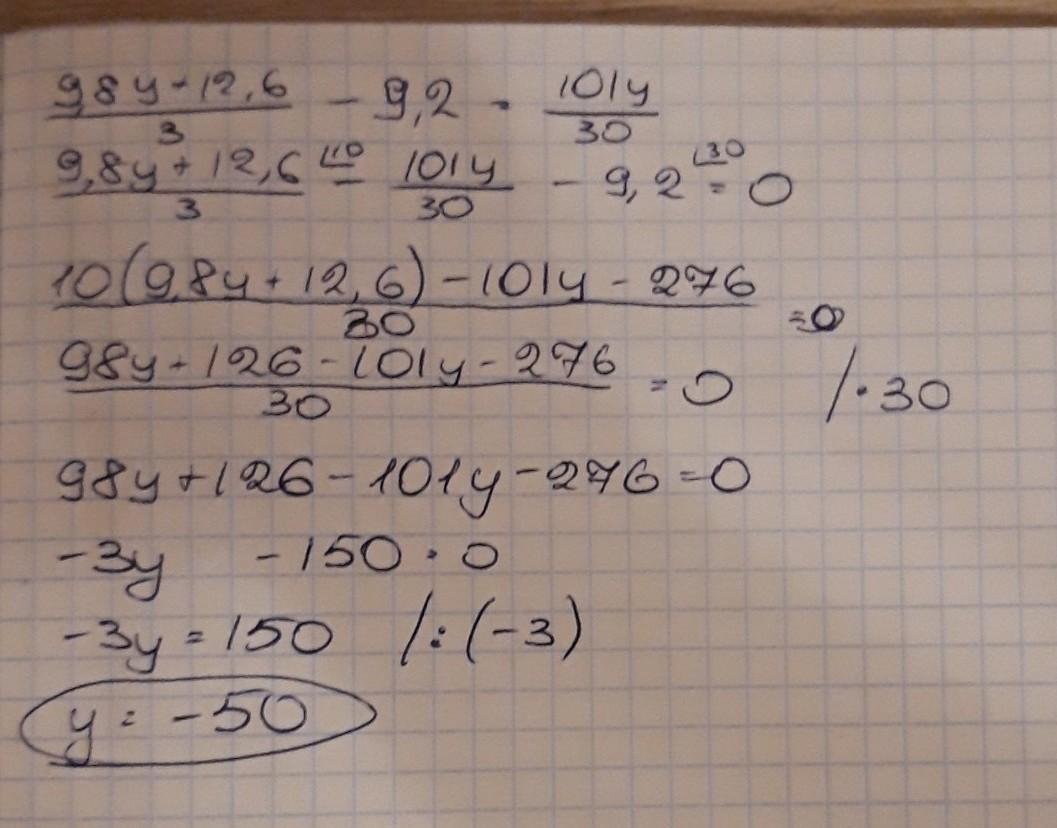 98y-12,6/3 - 9,2 = 101y/30
9,8y+12,6/3 ⌊10 - 101y/30 - 9,2 ⌊30 = 0
10(9,8y+12,6)-101y-276/30 =0
98y+126-101y-276/30 = 0 /·30
98y+126-101y-276=0
-3y -150=0
-3y=150 /:(-3)
y=-50